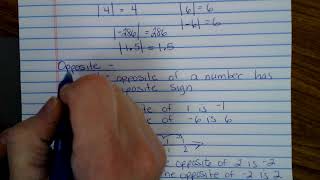 |4| = 4 |6| = 6
|-6| = 6
|-286| = 286
|1.5| = 1.5
Opposite -
opposite of a number has
opposite sign
of 1 is -1
of -6 is 6
1 2
opposite of 2 is -2
opposite of -2 is 2